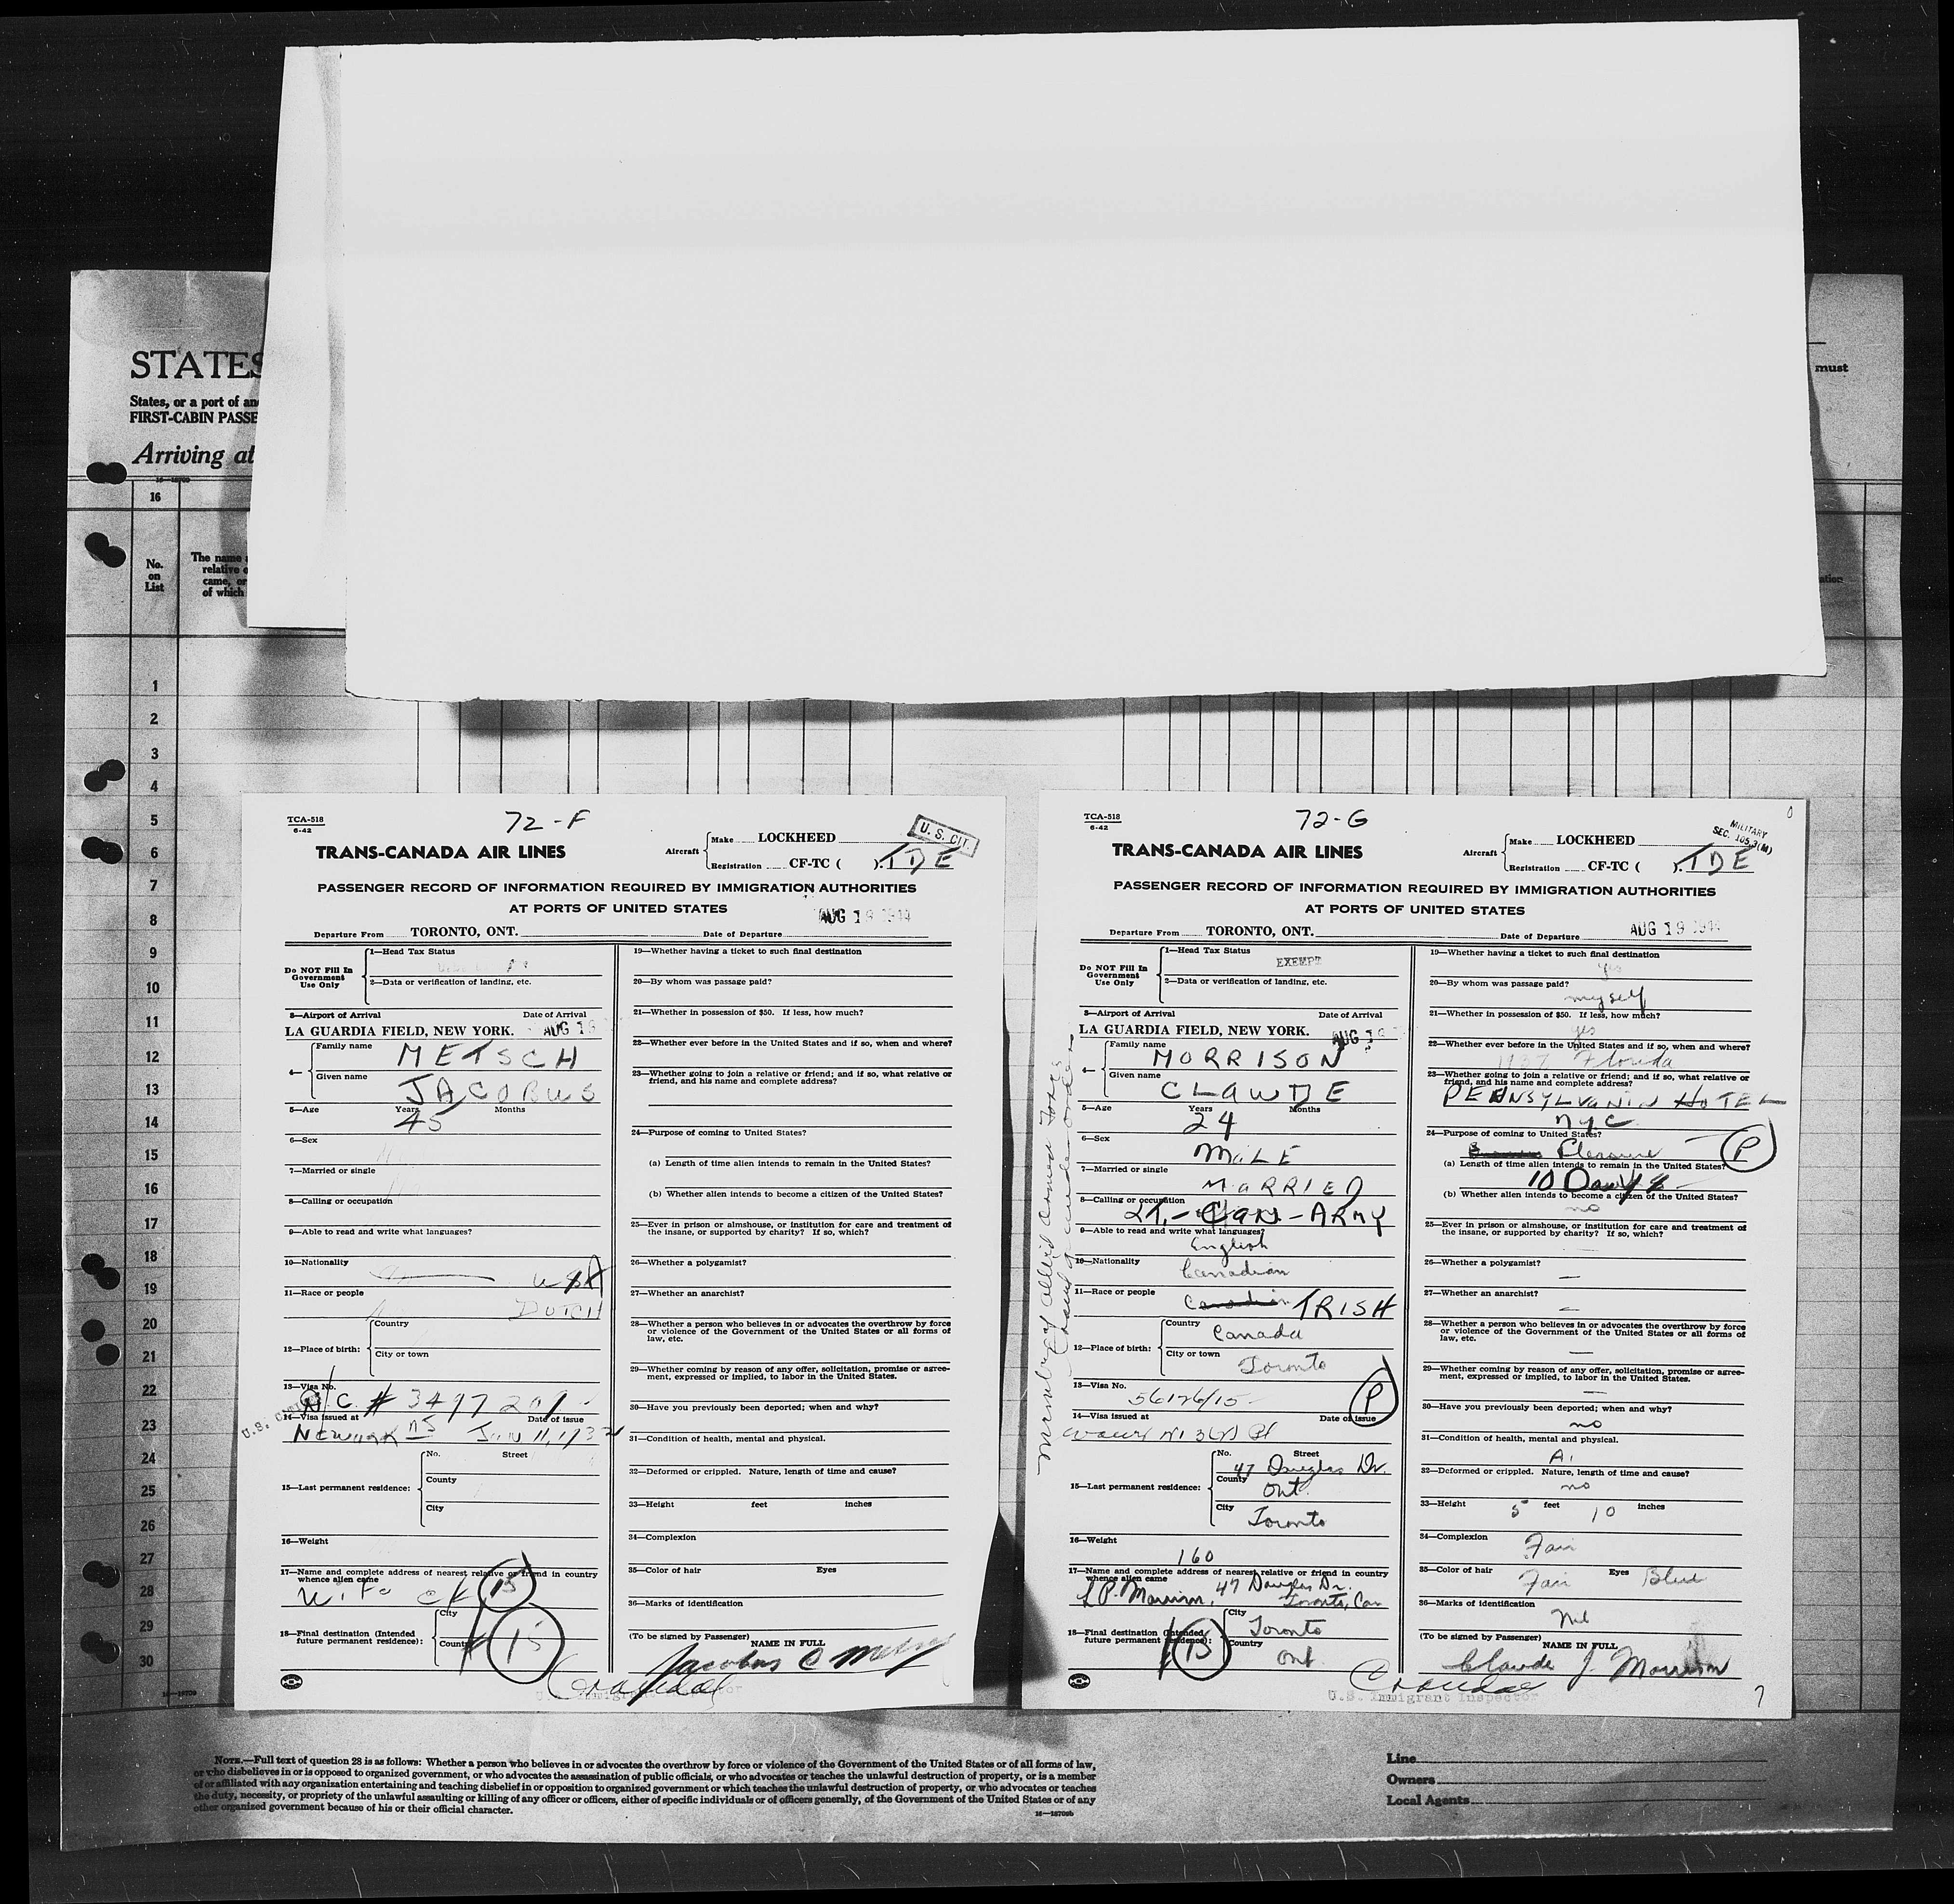 STATES
States, or a port of an
FIRST-CABIN PASSE
Arriving at
must
16
No.
on
List
The name
relative o
came, or
of which
1
2
3
4
5
6
7
8
9
10
11
12
13
14
15
16
17
18
19
20
21
22
23
24
25
26
27
28
29
30
TCA-518
6-42
72-F
U. S. CIT.
TRANS-CANADA AIR LINES
Aircraft
Make LOCKHEED
Registration CF-TC ( ). TDE
PASSENGER RECORD OF INFORMATION REQUIRED BY IMMIGRATION AUTHORITIES
AT PORTS OF UNITED STATES
AUG 19 1944
Departure From TORONTO, ONT. Date of Departure
Do NOT Fill In
Government
Use Only
1—Head Tax Status
2—Data or verification of landing, etc.
3—Airport of Arrival Date of Arrival
LA GUARDIA FIELD, NEW YORK. AUG 19
4—
Family name METSCH
Given name JACOBUS
5—Age Years Months
45
6—Sex
7—Married or single
8—Calling or occupation
9—Able to read and write what languages?
10—Nationality USA
11—Race or people DUTCH
12—Place of birth:
Country
City or town
13—Visa No.
N.C. # 3497201
14—Visa issued at Date of issue
Newark NJ Jan 11, 1932
15—Last permanent residence:
No. Street
County
City
16—Weight
17—Name and complete address of nearest relative or friend in country
whence alien came
Wife
15
18—Final destination (Intended
future permanent residence):
City
Country
15
19—Whether having a ticket to such final destination
20—By whom was passage paid?
21—Whether in possession of $50. If less, how much?
22—Whether ever before in the United States and if so, when and where?
23—Whether going to join a relative or friend; and if so, what relative or
friend, and his name and complete address?
24—Purpose of coming to United States?
(a) Length of time alien intends to remain in the United States?
(b) Whether alien intends to become a citizen of the United States?
25—Ever in prison or almshouse, or institution for care and treatment of
the insane, or supported by charity? If so, which?
26—Whether a polygamist?
27—Whether an anarchist?
28—Whether a person who believes in or advocates the overthrow by force
or violence of the Government of the United States or all forms of
law, etc.
29—Whether coming by reason of any offer, solicitation, promise or agree-
ment, expressed or implied, to labor in the United States.
30—Have you previously been deported; when and why?
31—Condition of health, mental and physical.
32—Deformed or crippled. Nature, length of time and cause?
33—Height feet inches
34—Complexion
35—Color of hair Eyes
36—Marks of identification
(To be signed by Passenger) NAME IN FULL
Jacobus C Metsch
Crandal
U.S. Immigrant Inspector
TCA-518
6-42
72-G
MILITARY
SEC. 105.3(M)
TRANS-CANADA AIR LINES
Aircraft
Make LOCKHEED
Registration CF-TC ( ). TDE
PASSENGER RECORD OF INFORMATION REQUIRED BY IMMIGRATION AUTHORITIES
AT PORTS OF UNITED STATES
AUG 19 1944
Departure From TORONTO, ONT. Date of Departure
Do NOT Fill In
Government
Use Only
1—Head Tax Status
EXEMPT
2—Data or verification of landing, etc.
3—Airport of Arrival Date of Arrival
LA GUARDIA FIELD, NEW YORK. AUG 19
4—
Family name MORRISON
Given name CLAUDE
5—Age Years Months
24
6—Sex MALE
7—Married or single
MARRIED
8—Calling or occupation
LT.-CAN.-ARMY
9—Able to read and write what languages?
English
10—Nationality Canadian
11—Race or people Canadian IRISH
12—Place of birth:
Country
Canada
City or town
Toronto
13—Visa No.
56126/15
P
14—Visa issued at Date of issue
15—Last permanent residence:
No. Street
47 Douglas Dr.
County
Ont.
City
Toronto
16—Weight
160
17—Name and complete address of nearest relative or friend in country
whence alien came
L P. Morrison, 47 Douglas Dr.
Toronto, Can
18—Final destination (Intended
future permanent residence):
15
City
Toronto
Country
Ont.
member of allied armed forces
19—Whether having a ticket to such final destination
yes
20—By whom was passage paid?
myself
21—Whether in possession of $50. If less, how much?
yes
22—Whether ever before in the United States and if so, when and where?
1937 Florida
23—Whether going to join a relative or friend; and if so, what relative or
friend, and his name and complete address?
PENNSYLVANIA HOTEL
NYC
24—Purpose of coming to United States?
Pleasure
P
(a) Length of time alien intends to remain in the United States?
10 Days
(b) Whether alien intends to become a citizen of the United States?
no
25—Ever in prison or almshouse, or institution for care and treatment of
the insane, or supported by charity? If so, which?
—
26—Whether a polygamist?
—
27—Whether an anarchist?
—
28—Whether a person who believes in or advocates the overthrow by force
or violence of the Government of the United States or all forms of
law, etc.
—
29—Whether coming by reason of any offer, solicitation, promise or agree-
ment, expressed or implied, to labor in the United States.
—
30—Have you previously been deported; when and why?
no
31—Condition of health, mental and physical.
A1
32—Deformed or crippled. Nature, length of time and cause?
no
33—Height 5 feet 10 inches
34—Complexion
Fair
35—Color of hair Fair Eyes Blue
36—Marks of identification
Nil
(To be signed by Passenger) NAME IN FULL
Claude J. Morrison
Crandal
U.S. Immigrant Inspector
7
NOTE.—Full text of question 28 is as follows: Whether a person who believes in or advocates the overthrow by force or violence of the Government of the United States or of all forms of law,
or who disbelieves in or is opposed to organized government, or who advocates the assassination of public officials, or who advocates or teaches the unlawful destruction of property, or is a member
of or affiliated with any organization entertaining and teaching disbelief in or opposition to organized government or which teaches the unlawful destruction of property, or who advocates or teaches
the duty, necessity, or propriety of the unlawful assaulting or killing of any officer or officers, either of specific individuals or of officers generally, of the Government of the United States or of any
other organized government because of his or their official character.
Line
Owners
Local Agents